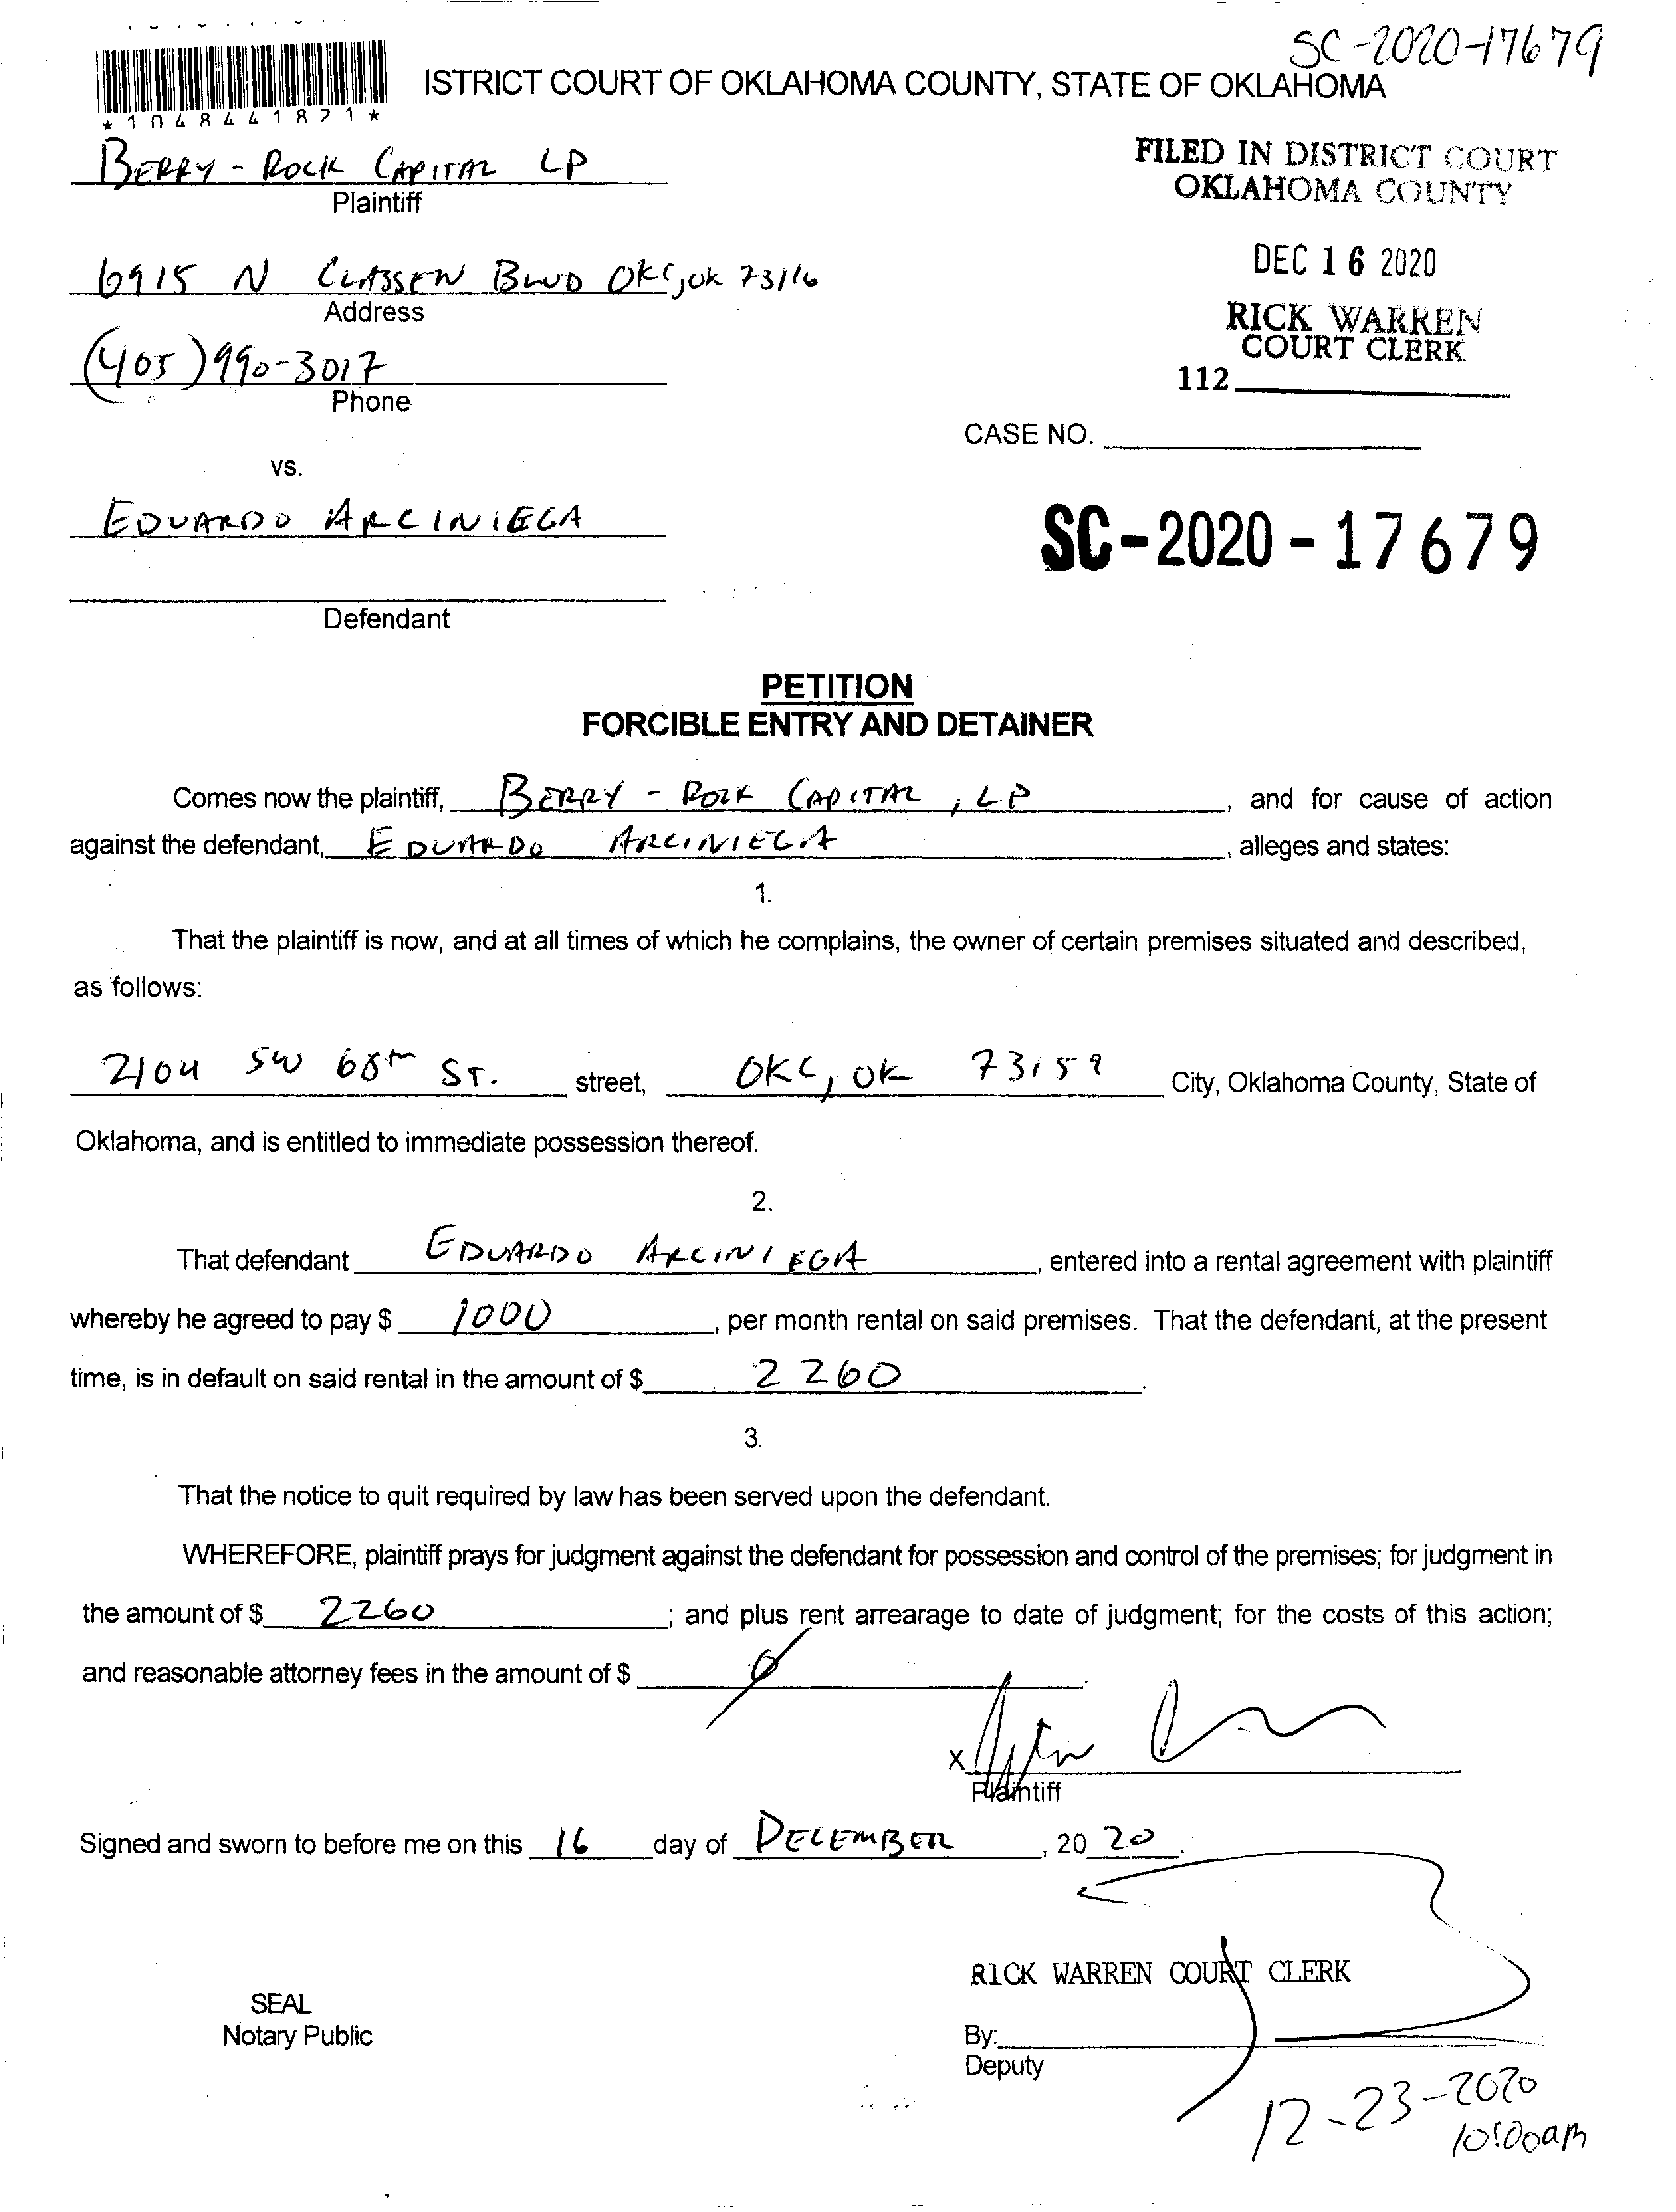 SC-2020-17679
ISTRICT COURT OF OKLAHOMA COUNTY, STATE OF OKLAHOMA
*1048441871*
BERRY - ROCK CAPITAL LP
Plaintiff
FILED IN DISTRICT COURT
OKLAHOMA COUNTY
6915 N CLASSEN BLVD OKC, OK 73116
Address
DEC 16 2020
RICK WARREN
COURT CLERK
(405) 990-3017
Phone
112
CASE NO.
vs.
EDUARDO ARCINIEGA
SC-2020-17679
Defendant
PETITION
FORCIBLE ENTRY AND DETAINER
Comes now the plaintiff, BERRY - ROCK CAPITAL, LP, and for cause of action
against the defendant, EDUARDO ARCINIEGA, alleges and states:
1.
That the plaintiff is now, and at all times of which he complains, the owner of certain premises situated and described,
as follows:
2104 SW 68th ST. street, OKC, OK 73159 City, Oklahoma County, State of
Oklahoma, and is entitled to immediate possession thereof.
2.
That defendant EDUARDO ARCINIEGA, entered into a rental agreement with plaintiff
whereby he agreed to pay $ 1000, per month rental on said premises. That the defendant, at the present
time, is in default on said rental in the amount of $ 2260.
3.
That the notice to quit required by law has been served upon the defendant.
WHEREFORE, plaintiff prays for judgment against the defendant for possession and control of the premises; for judgment in
the amount of $ 2260; and plus rent arrearage to date of judgment; for the costs of this action;
and reasonable attorney fees in the amount of $ 0.
X
Plaintiff
Signed and sworn to before me on this 16 day of DECEMBER, 20 20.
RICK WARREN COURT CLERK
SEAL
Notary Public
By:
Deputy
12-23-2020
10:00am